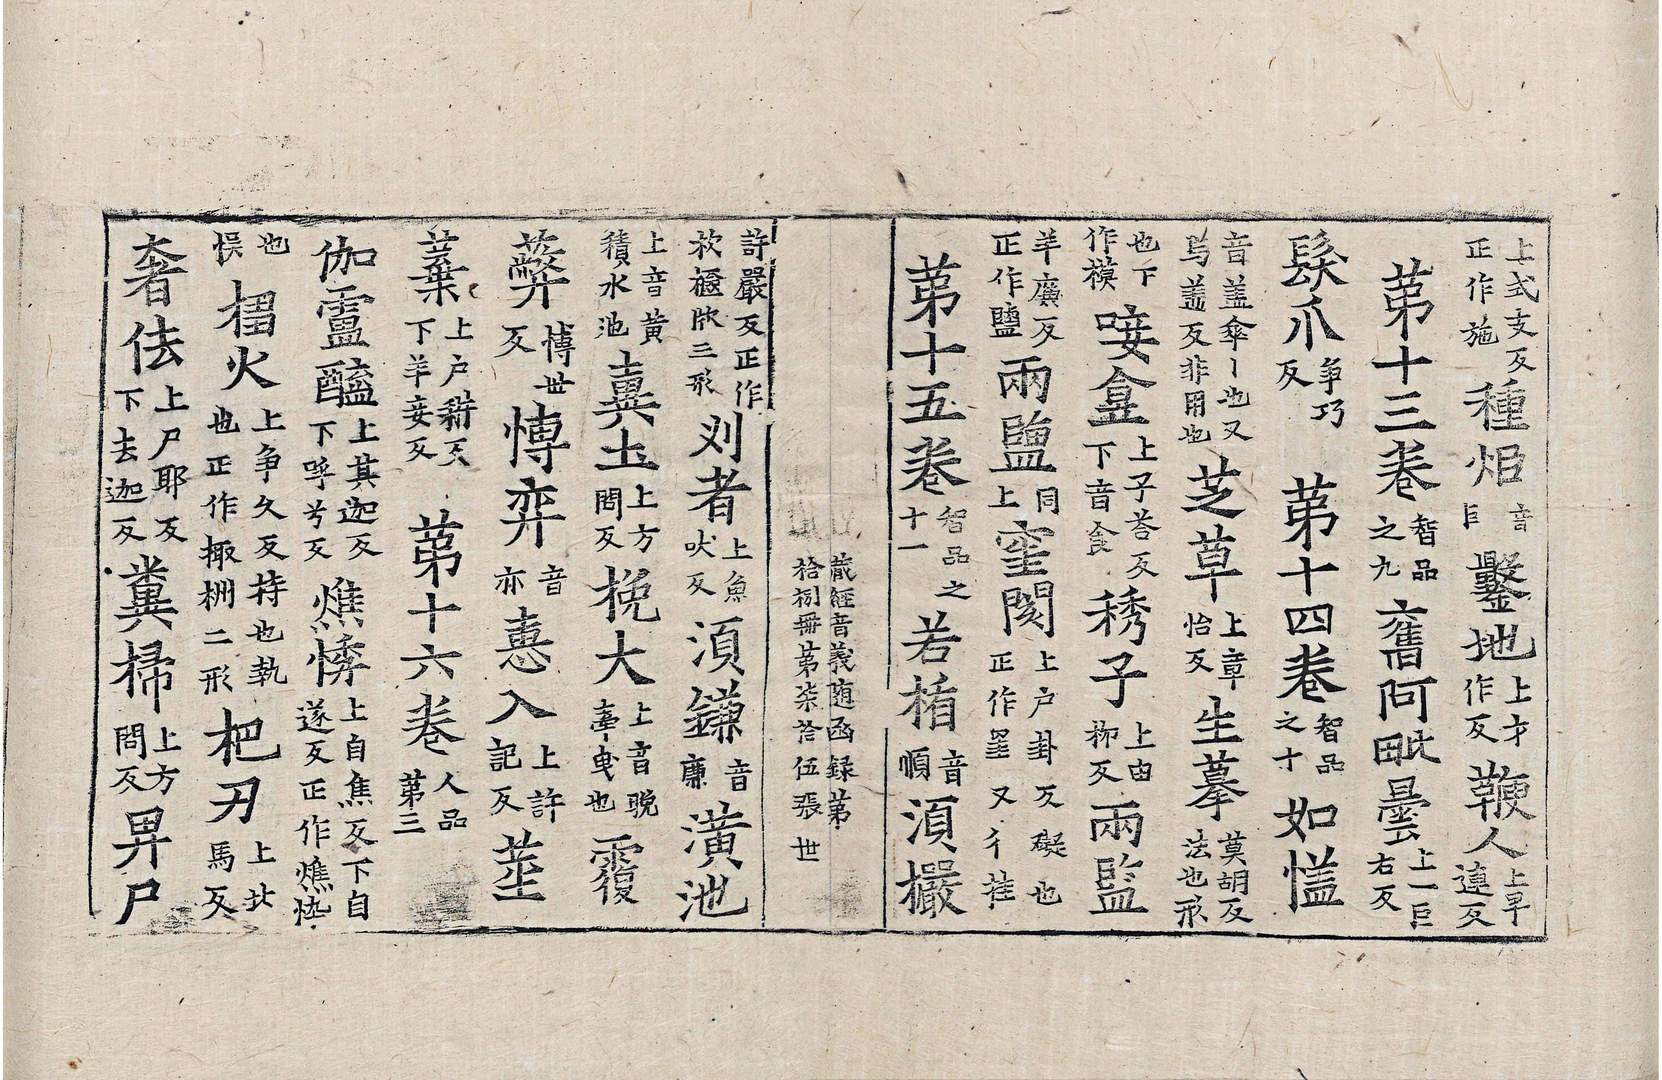 上式支反正作施種炬音巨鑿地上才作反鞭人上卑連反
第十三卷智品之九奮阿毗曇上一巨右反
髮爪爭巧反第十四卷智品之十如㦢
音盖傘〻也又烏盖反非用也芝草上章怡反生摹莫胡反法也形
也下作模唼盒上子荅反下音食稀子上由柳反兩監
羊廉反正作鹽兩鹽同上窐閡上戶卦反礙也正作罣又彳挂
第十五卷智品之十一若楯音順須巖
藏經音義随函録第拾捌冊第柒拾伍張世
許嚴反正作杴㭠㰹三形刈者上魚吠反須鎌音廉潢池
上音黄積水池糞土上方問反挽大上音晚牽曳也覆
𧀱弈博世反博弈音亦恚入上許記反葦
葉上戶稍反下羊妾反第十六卷人品第三
伽靈醯上其迦反下呼兮反燋悴上自焦反下自遂反正作燋忰
也悮榴火上爭久反持也執也正作掫棩二形杷刃上北馬反
奢佉上尸耶反下去迦反糞掃上方問反昇尸